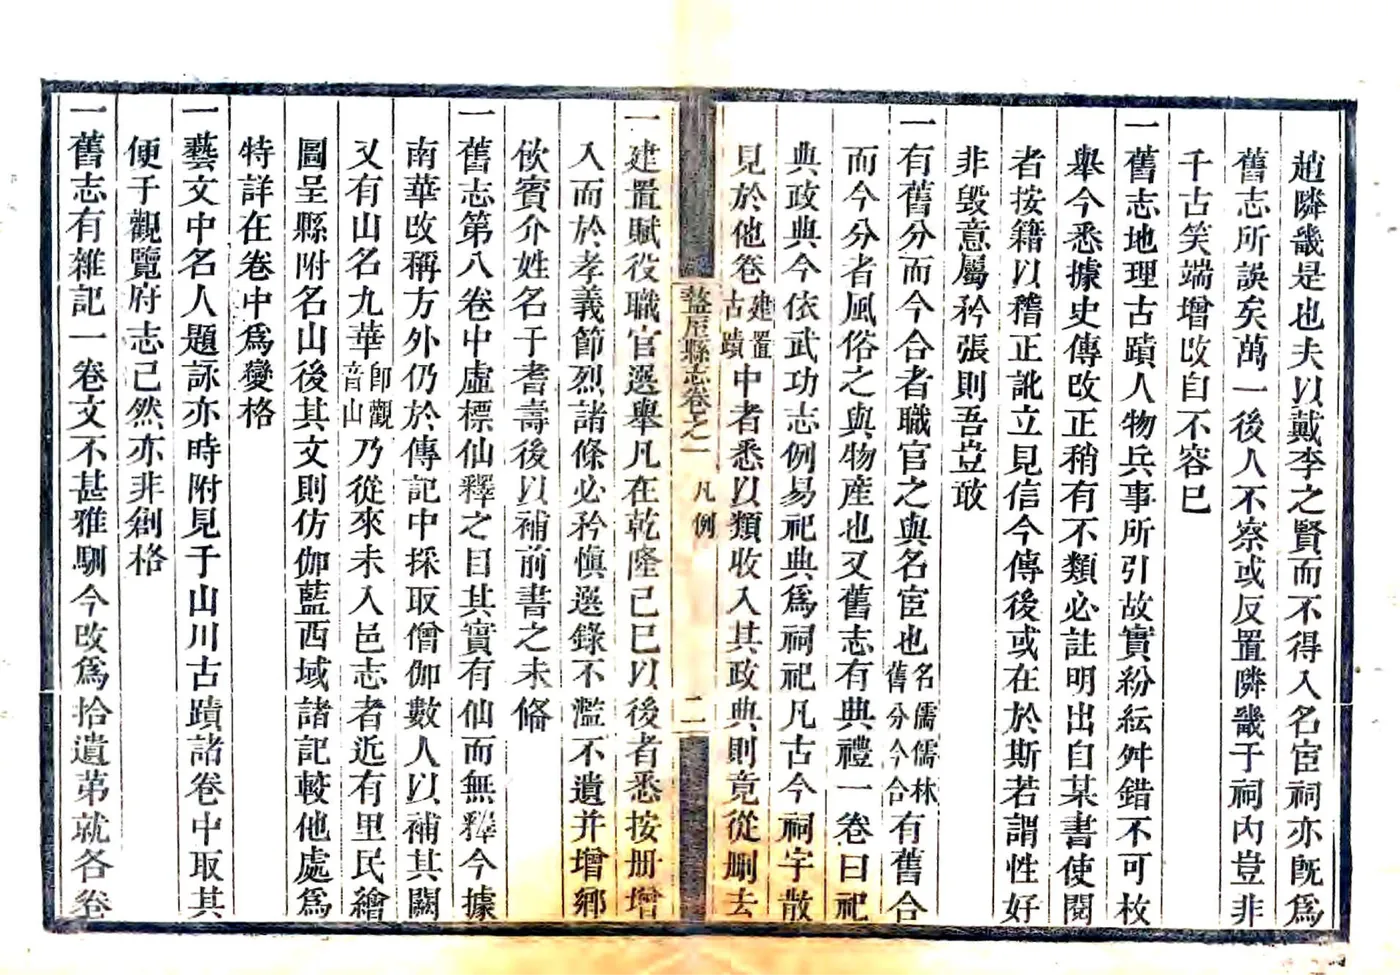 趙隣畿是也夫以戴李之賢而不得入名宦祠亦旣爲
舊志所誤矣萬一後人不察或反置隣畿于祠内豈非
千古笑端增改自不容已
一舊志地理古蹟人物兵事所引故實紛紜舛錯不可枚
舉今悉據史傳改正稍有不類必註明出自某書使閱
者按籍以稽正訛立見信今傳後或在於斯若謂性好
非毀意屬矜張則吾豈敢
一有舊分而今合者職官之與名宦也名儒儒林舊分今合有舊合
而今分者風俗之與物産也又舊志有典禮一卷曰祀
典政典今依武功志例易祀典爲祠祀凡古今祠宇散
見於他卷建置古蹟中者悉以類收入其政典則竟從删去
盩厔縣志卷之一 凡例 二
一建置賦役職官選舉凡在乾隆己巳以後者悉按册增
入而於孝義節烈諸條必矜慎選錄不濫不遺并增鄉
飲賓介姓名于耆壽後以補前書之未俻
一舊志第八卷中虚標仙釋之目其實有仙而無釋今據
南華改稱方外仍於傳記中採取僧伽數人以補其闕
又有山名九華卽觀音山乃從來未入邑志者近有里民繪
圖呈縣附名山後其文則仿伽藍西域諸記較他處爲
特詳在卷中爲變格
一藝文中名人題詠亦時附見于山川古蹟諸卷中取其
便于觀覽府志已然亦非創格
一舊志有雜記一卷文不甚雅馴今改爲拾遺苐就各卷